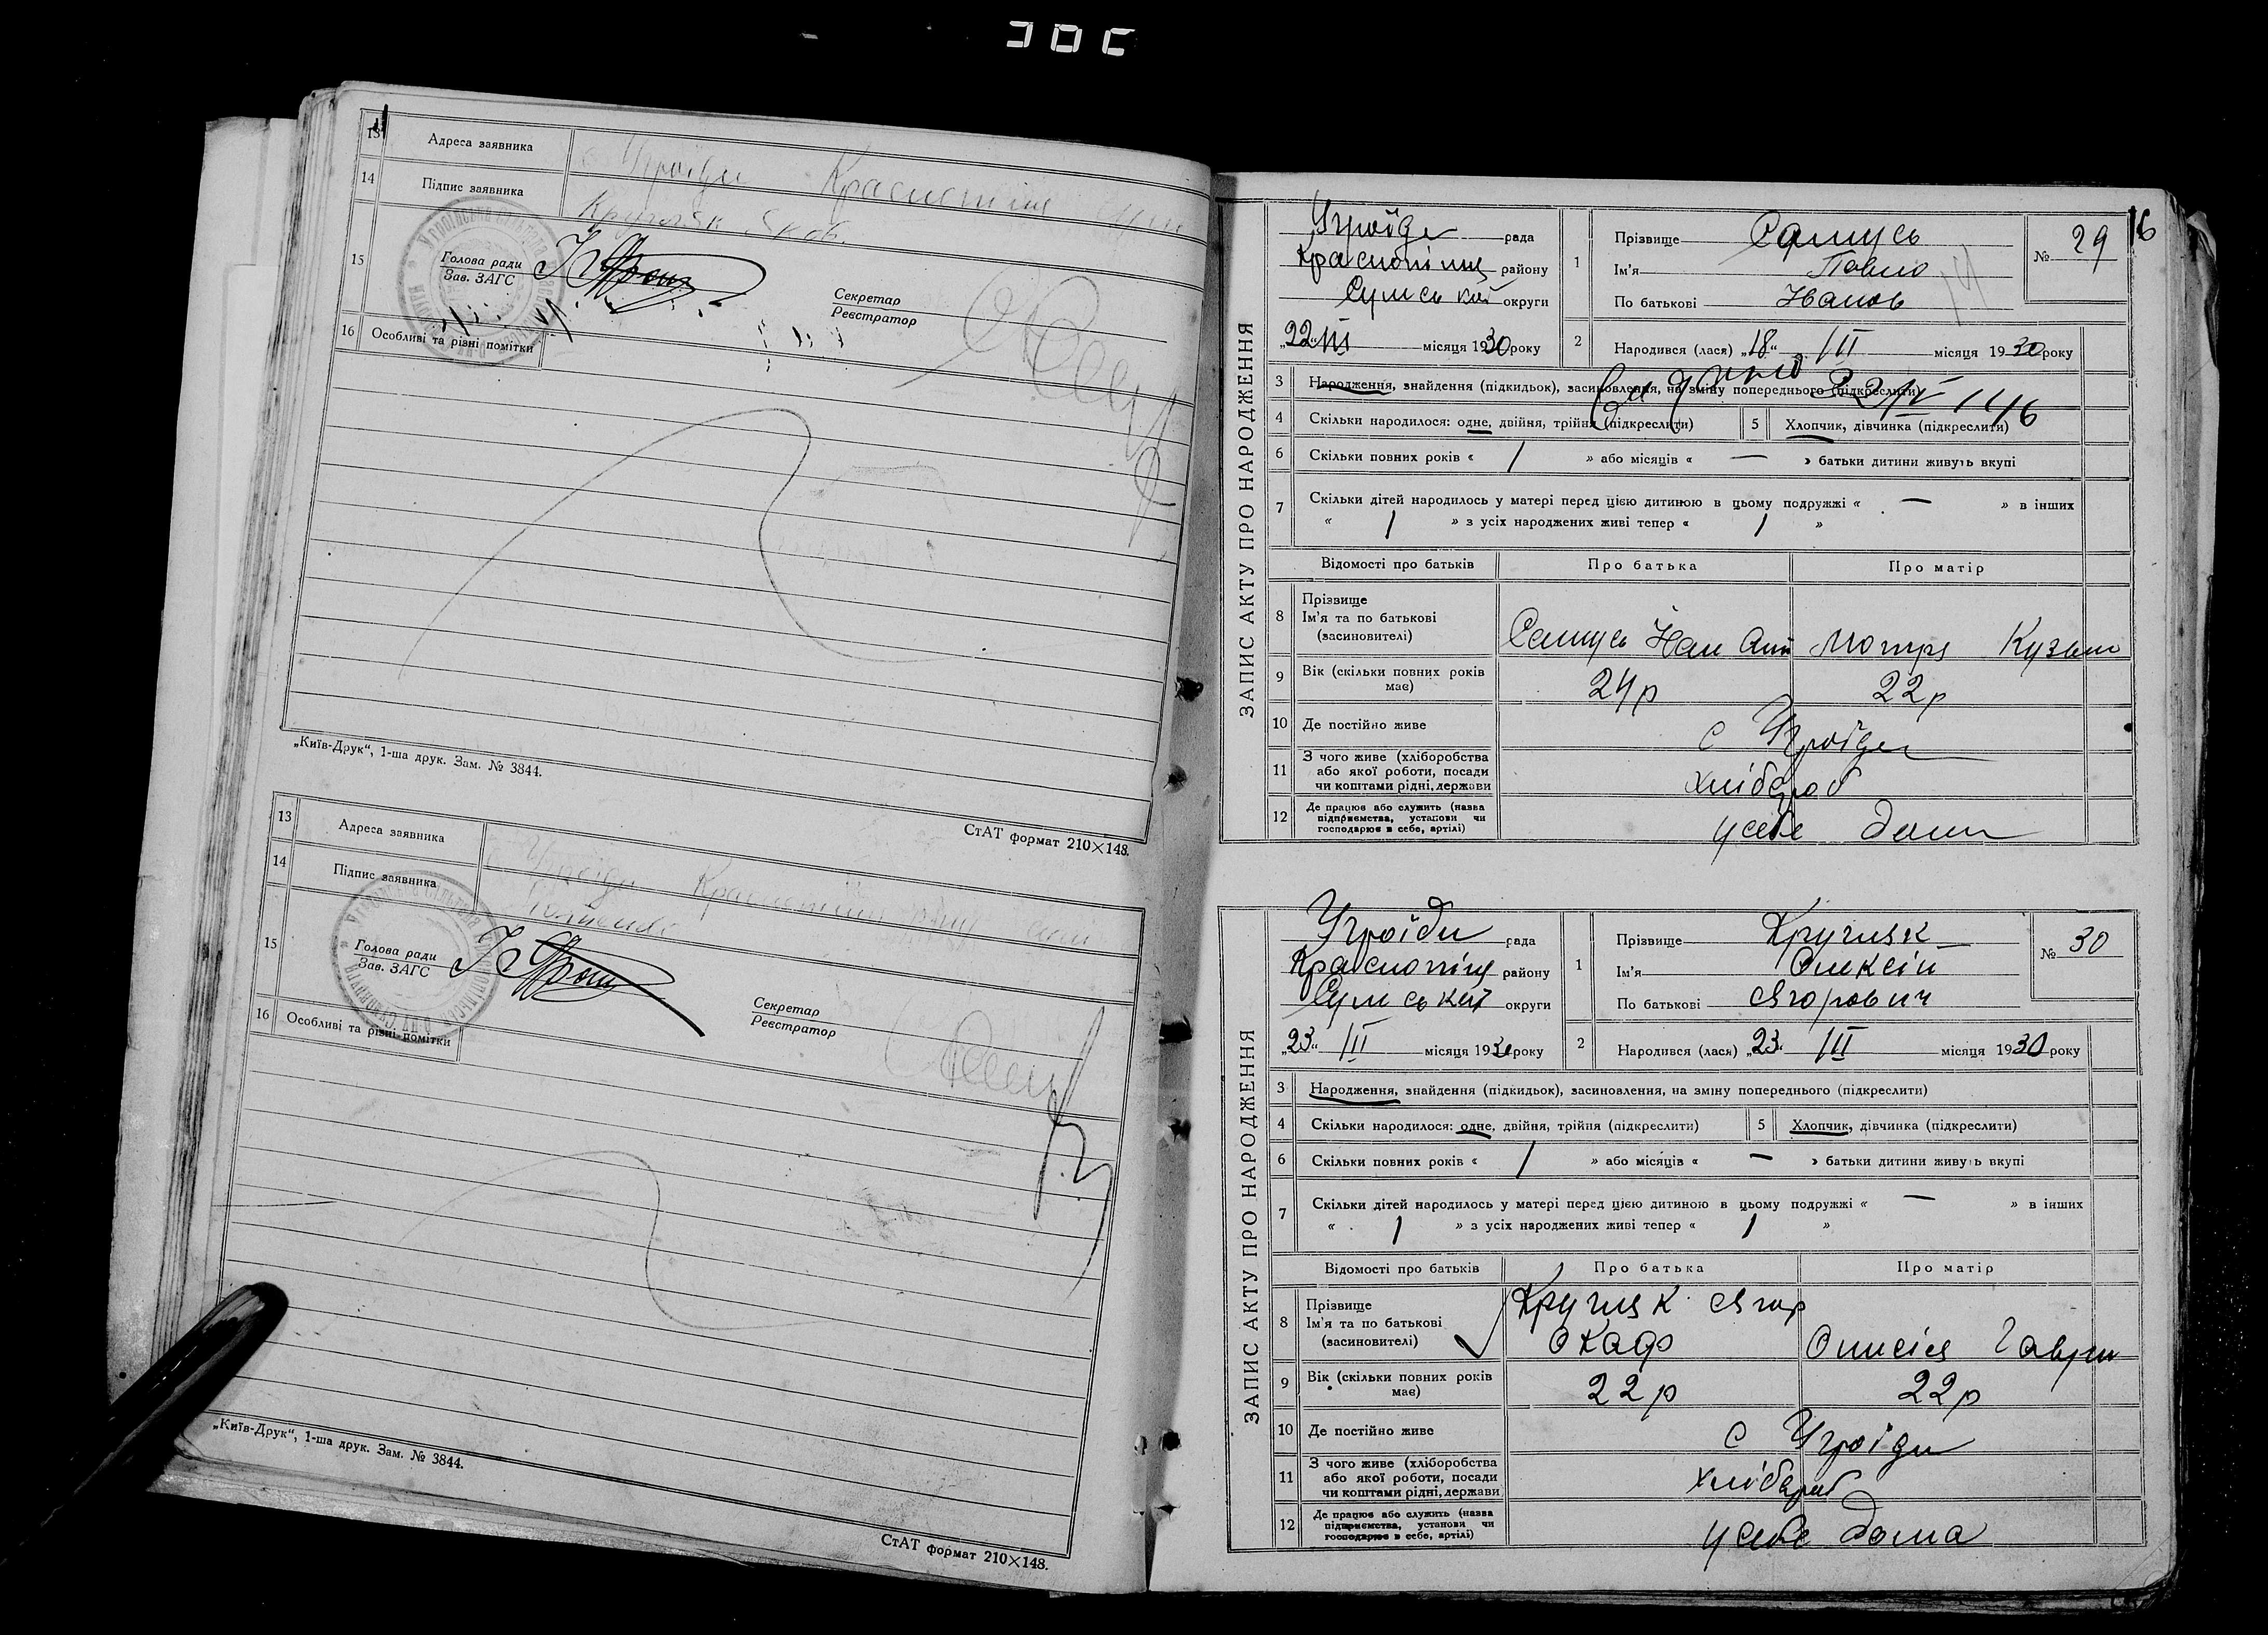 13 Адреса заявника Угроїди Краснопіль
14 Підпис заявника Кругляк Яков.
15 Голова ради
Зав. ЗАГС
Секретар
Реєстратор
16 Особливі та різні помітки
„Київ-Друк“, 1-ша друк. Зам. № 3844.
СтАТ формат 210×148.
13 Адреса заявника Угроїди
14 Підпис заявника
15 Голова ради
Зав. ЗАГС
Секретар
Реєстратор
16 Особливі та різні помітки
„Київ-Друк“, 1-ша друк. Зам. № 3844.
СтАТ формат 210×148.
16
ЗАПИС АКТУ ПРО НАРОДЖЕННЯ
Угроїди рада
Краснопіль району
Сумської округи
„22“ III місяця 1930 року
1 Прізвище Самусь
Ім'я Павло
По батькові Іванов
№ 29
2 Народився (лася) „18“ III місяця 1930 року
3 Народження, знайдення (підкидьок), засиновлення, на зміну попереднього (підкреслити)
4 Скільки народилося: одне, двійня, трійня (підкреслити) 5 Хлопчик, дівчинка (підкреслити)
6 Скільки повних років « 1 » або місяців « — » батьки дитини живуть вкупі
7 Скільки дітей народилось у матері перед цією дитиною в цьому подружжі « — » в інших
« 1 » з усіх народжених живі тепер « 1 »
Відомості про батьків Про батька Про матір
8 Прізвище
Ім'я та по батькові
(засиновителі)
Самусь Мотря Кузьм
9 Вік (скільки повних років має) 24 р 22 р
10 Де постійно живе с Угроїди
11 З чого живе (хліборобства
або якої роботи, посади
чи коштами рідні, держави
хлібороб
12 Де працює або служить (назва
підприємства, установи чи
господарює в себе, артілі)
у себе дома
ЗАПИС АКТУ ПРО НАРОДЖЕННЯ
Угроїди рада
Краснопіль району
Сумської округи
„23“ III місяця 1930 року
1 Прізвище Кругляк
Ім'я Олексій
По батькові Єгорович
№ 30
2 Народився (лася) „23“ III місяця 1930 року
3 Народження, знайдення (підкидьок), засиновлення, на зміну попереднього (підкреслити)
4 Скільки народилося: одне, двійня, трійня (підкреслити) 5 Хлопчик, дівчинка (підкреслити)
6 Скільки повних років « 1 » або місяців « — » батьки дитини живуть вкупі
7 Скільки дітей народилось у матері перед цією дитиною в цьому подружжі « — » в інших
« 1 » з усіх народжених живі тепер « 1 »
Відомості про батьків Про батька Про матір
8 Прізвище
Ім'я та по батькові
(засиновителі)
Кругляк Єгор
9 Вік (скільки повних років має) 22 р 22 р
10 Де постійно живе с Угроїди
11 З чого живе (хліборобства
або якої роботи, посади
чи коштами рідні, держави
хлібороб
12 Де працює або служить (назва
підприємства, установи чи
господарює в себе, артілі)
у себе дома